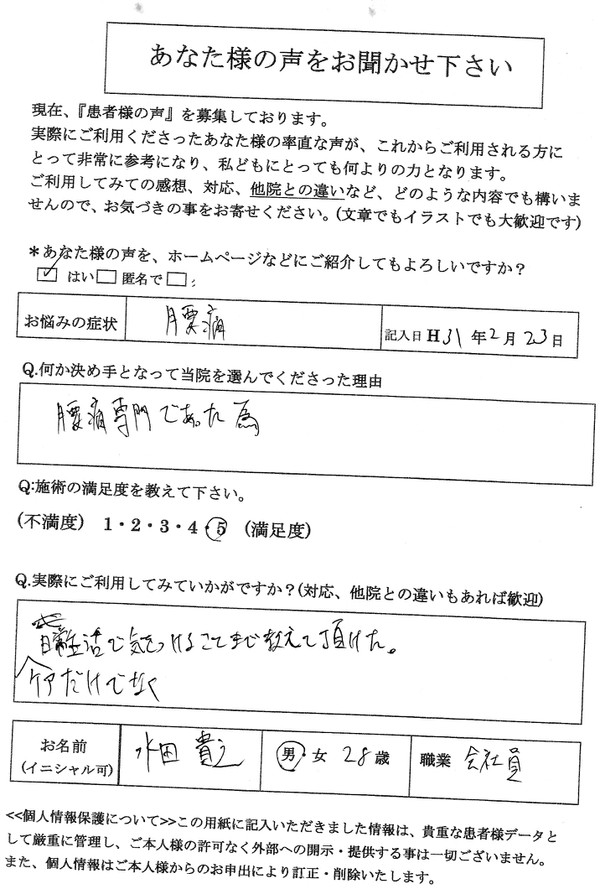 あなた様の声をお聞かせ下さい
現在、『患者様の声』を募集しております。
実際にご利用くださったあなた様の率直な声が、これからご利用される方に
とって非常に参考になり、私どもにとっても何よりの力となります。
ご利用してみての感想、対応、他院との違いなど、どのような内容でも構いま
せんので、お気づきの事をお寄せください。(文章でもイラストでも大歓迎です)
*あなた様の声を、ホームページなどにご紹介してもよろしいですか?
☑ はい □ 匿名で □ ;
お悩みの症状 腰痛 記入日 H31 年 2 月 23 日
Q.何か決め手となって当院を選んでくださった理由
腰痛専門であった為
Q:施術の満足度を教えて下さい。
(不満度) 1・2・3・4・5 (満足度)
Q.実際にご利用してみていかがですか?(対応、他院との違いもあれば歓迎)
生活で気をつけることまで教えて頂けた。
ケアだけでなく
お名前 水田 貴之 男・女 28 歳 職業 会社員
(イニシャル可)
<<個人情報保護について>>この用紙に記入いただきました情報は、貴重な患者様データと
して厳重に管理し、ご本人様の許可なく外部への開示・提供する事は一切ございません。
また、個人情報はご本人様からのお申出により訂正・削除いたします。